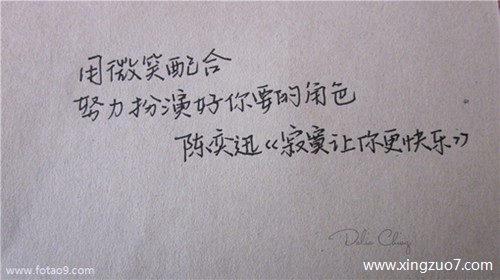 用微笑配合
努力扮演好你要的角色
陈奕迅《寂寞让你更快乐》
www.fotao9.com
www.xingzuo7.com